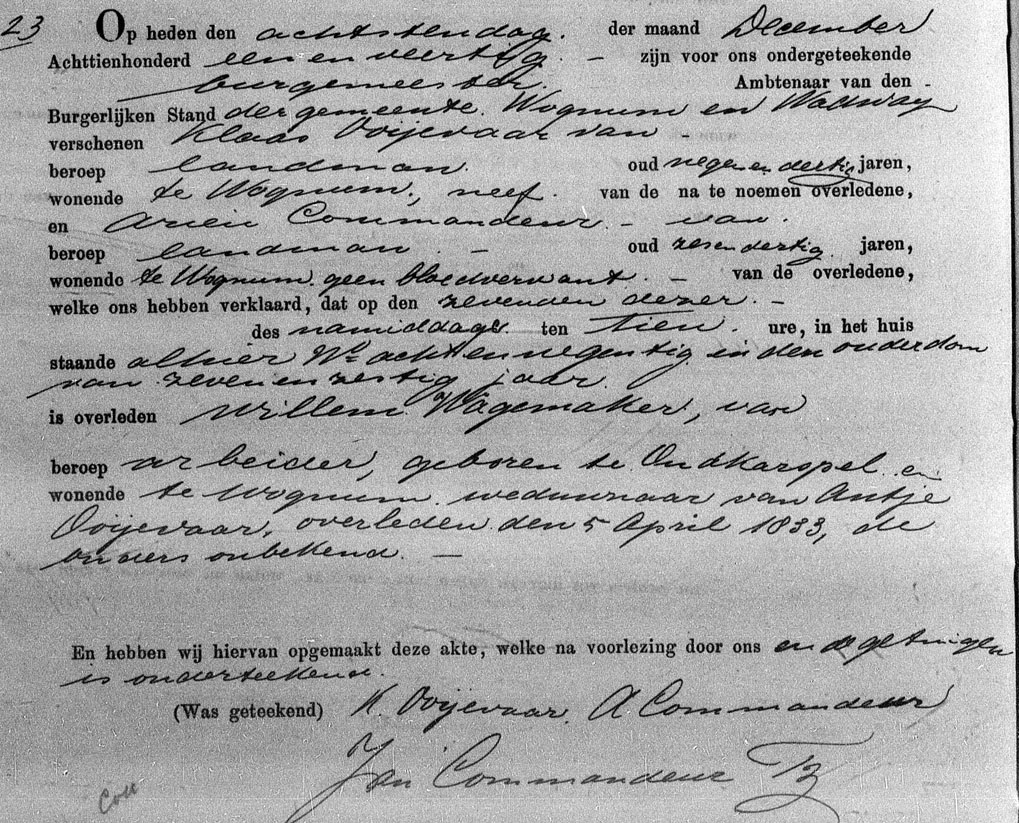 23 Op heden den achtstendag. der maand December
Achttienhonderd een en veertig. – zijn voor ons ondergeteekende
burgemeester. Ambtenaar van den
Burgerlijken Stand der gemeente Wognum en Wadway
verschenen Klaas Ooijevaar van –
beroep landman. oud negenendertig jaren,
wonende te Wognum, neef. van de na te noemen overledene,
en Arien Commandeur – van.
beroep landman. – oud zesendertig jaren,
wonende te Wognum geen bloedverwant. – van de overledene,
welke ons hebben verklaard, dat op den zevenden dezer. –
des namiddags ten tien. ure, in het huis
staande alhier No achtennegentig in den ouderdom
van zevenenzestig jaar.
is overleden Willem Wagemaker, van
beroep arbeider, geboren te Oudkarspel en
wonende te Wognum weduwnaar van Antje
Ooijevaar, overleden den 5 April 1833, de
ouders onbekend. –
En hebben wij hiervan opgemaakt deze akte, welke na voorlezing door ons en de getuigen
is onderteekend.
(Was geteekend) K. Ooijevaar. A Commandeur
Jan Commandeur Tz
Coll